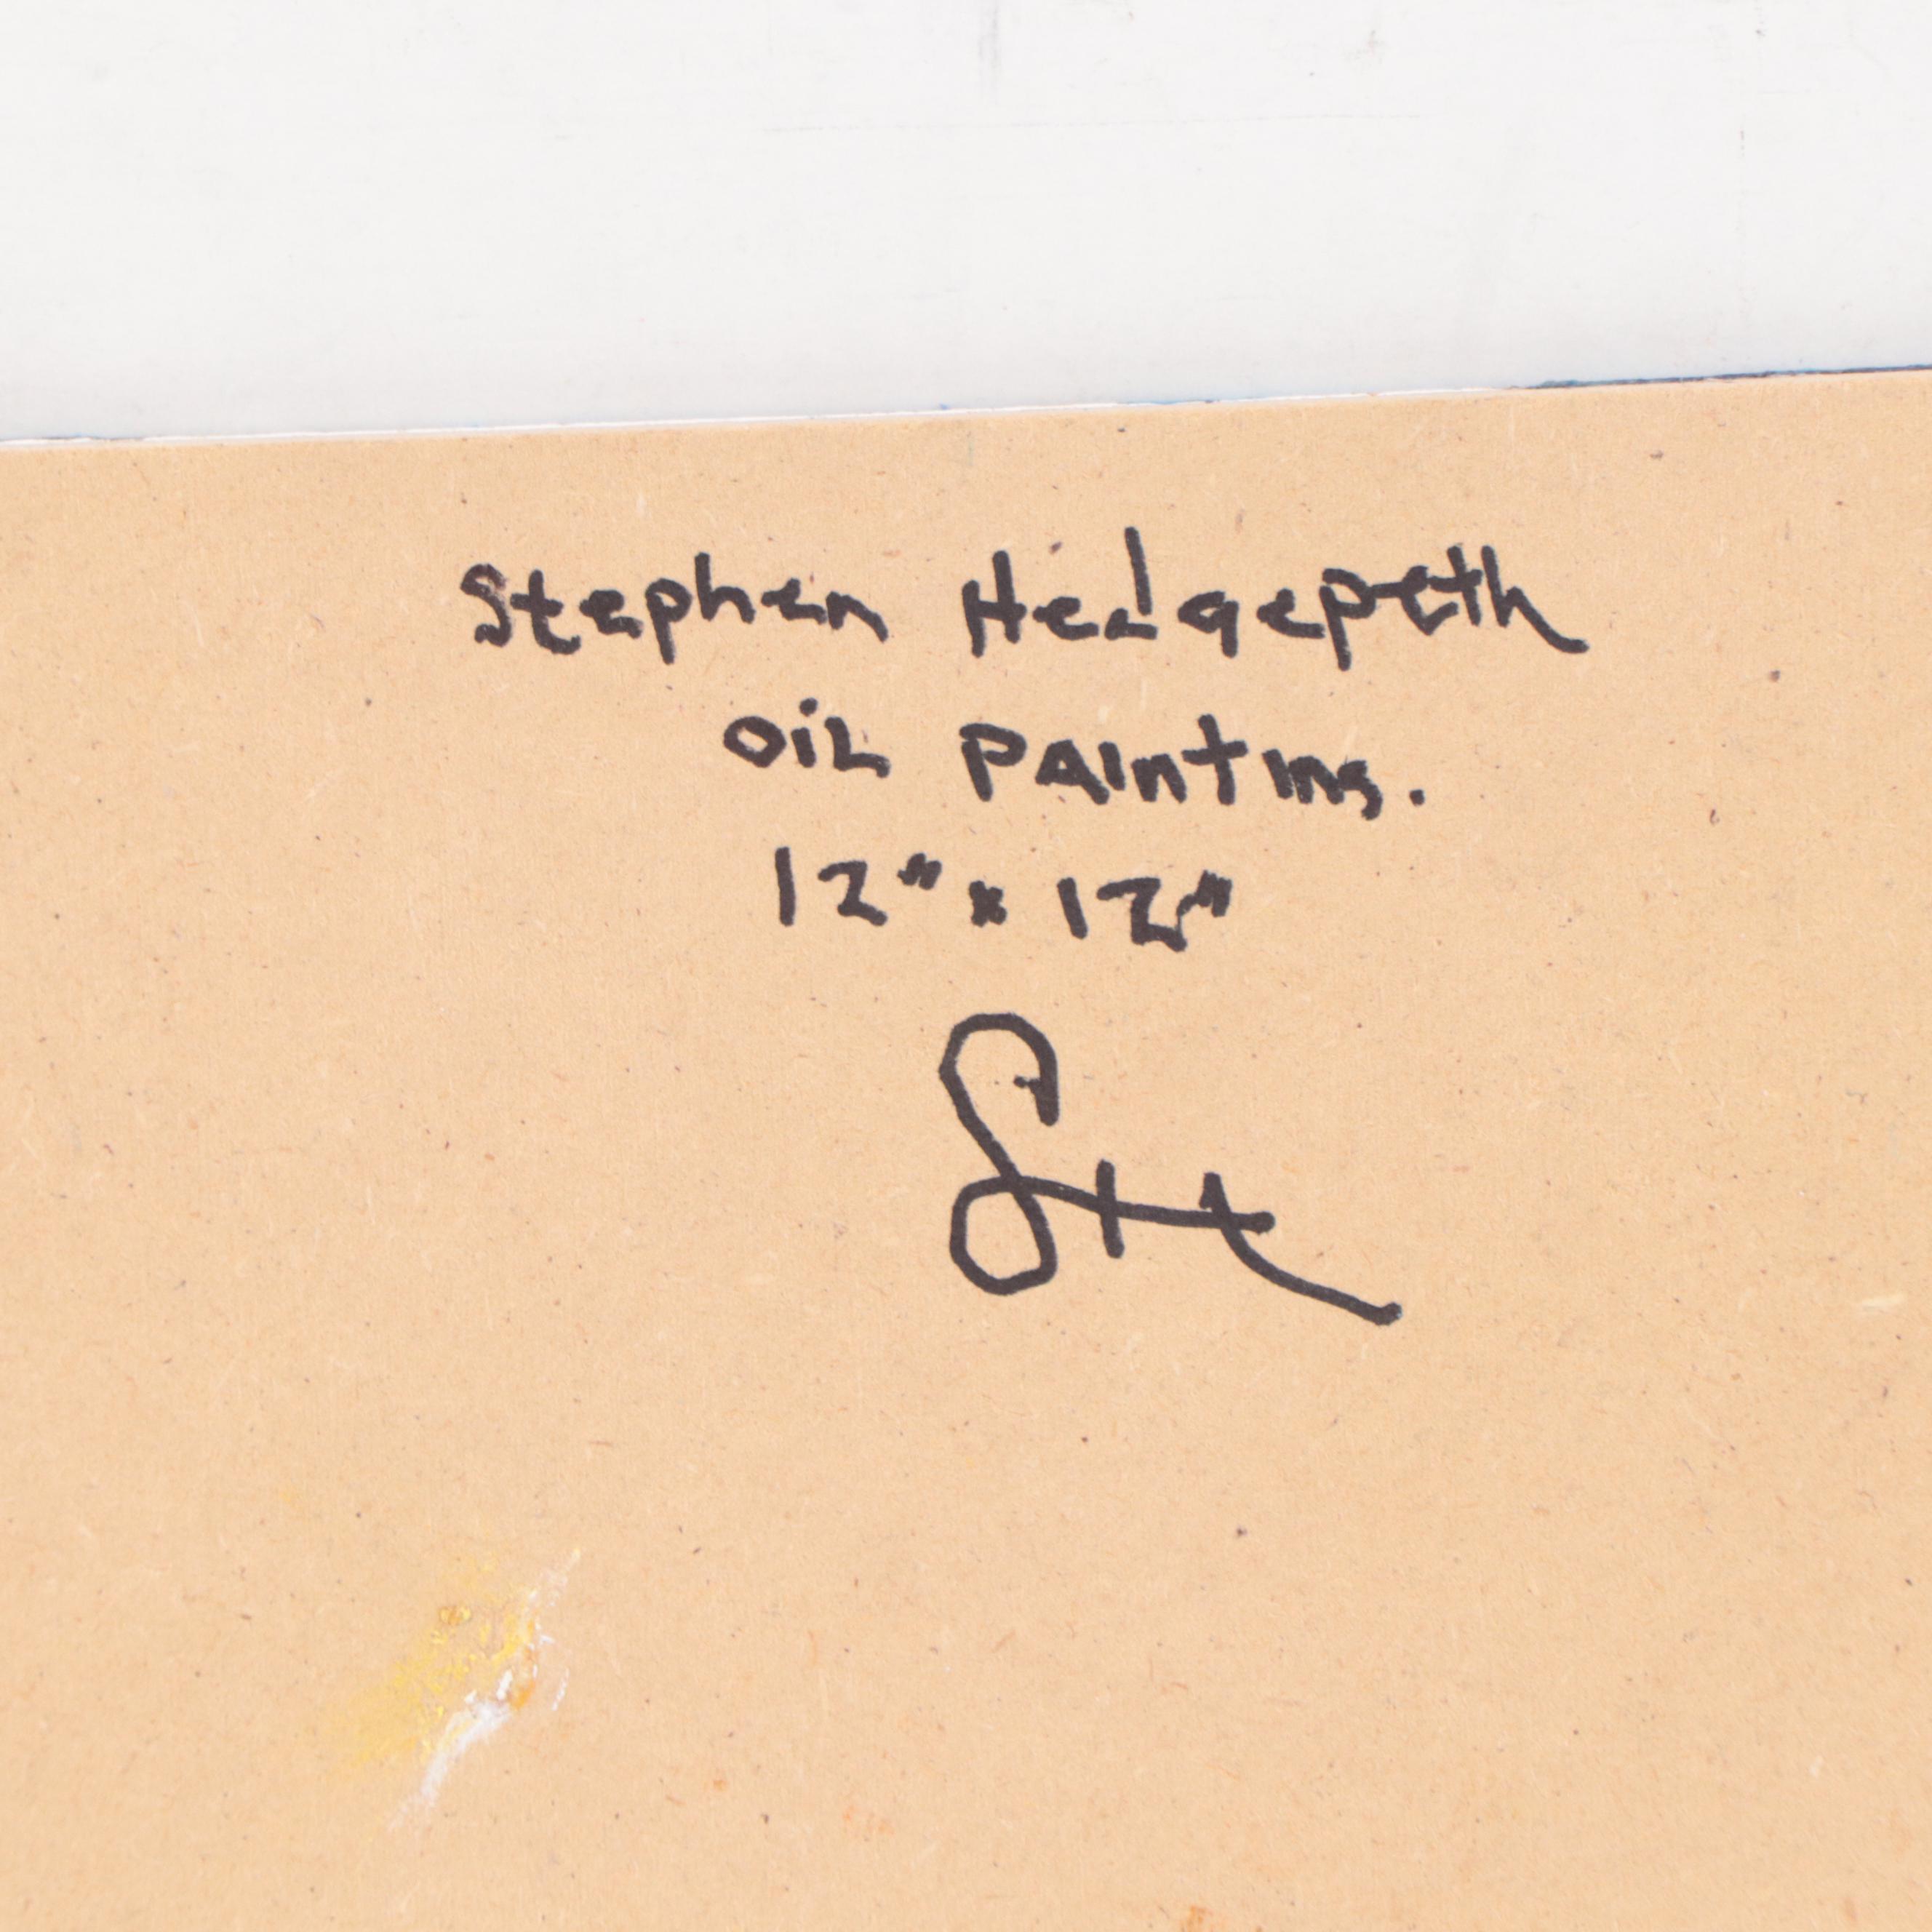 Stephen Hedgepeth
OiL PAinting.
12" x 12"
SH